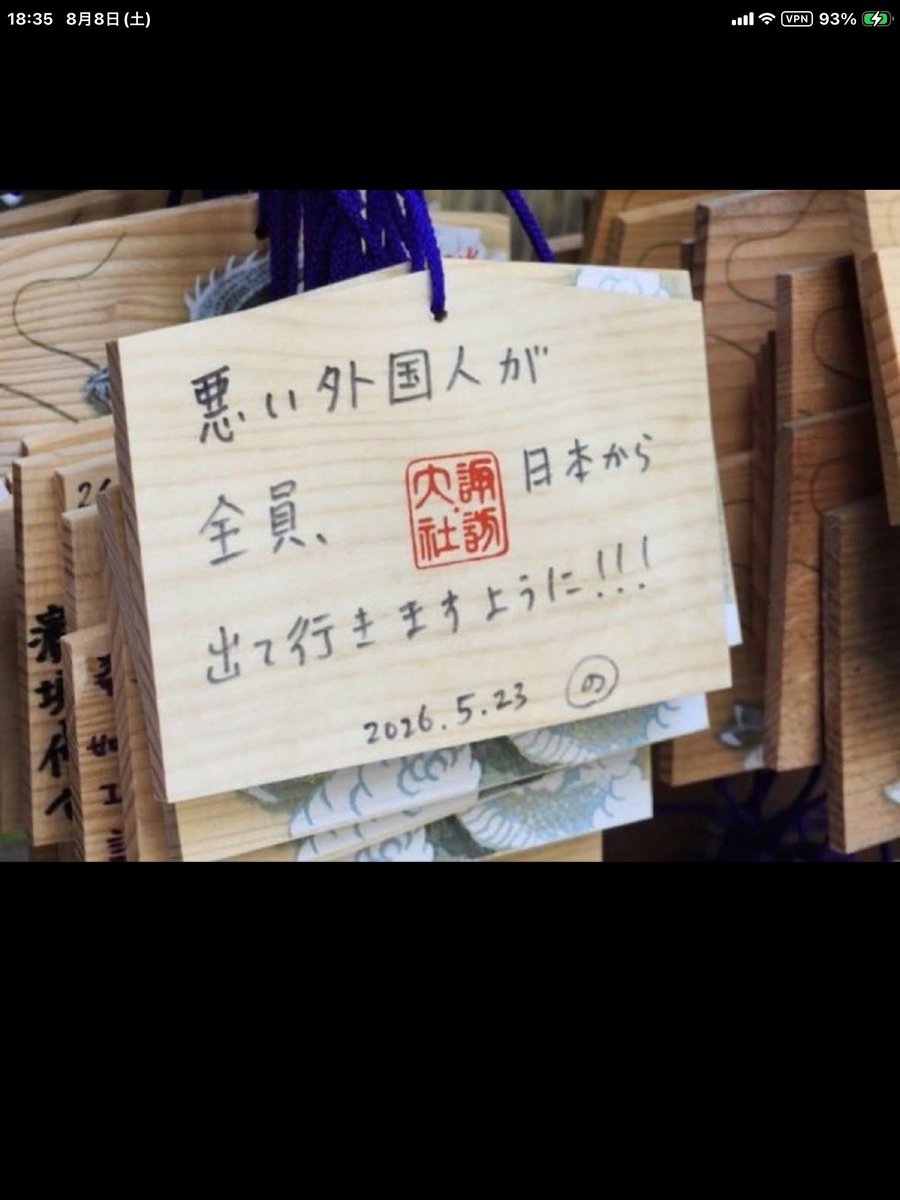 18:35 8月8日(土)
VPN 93%
悪い外国人が
全員、 日本から
諏訪
大社
出て行きますように!!!
2026.5.23 の